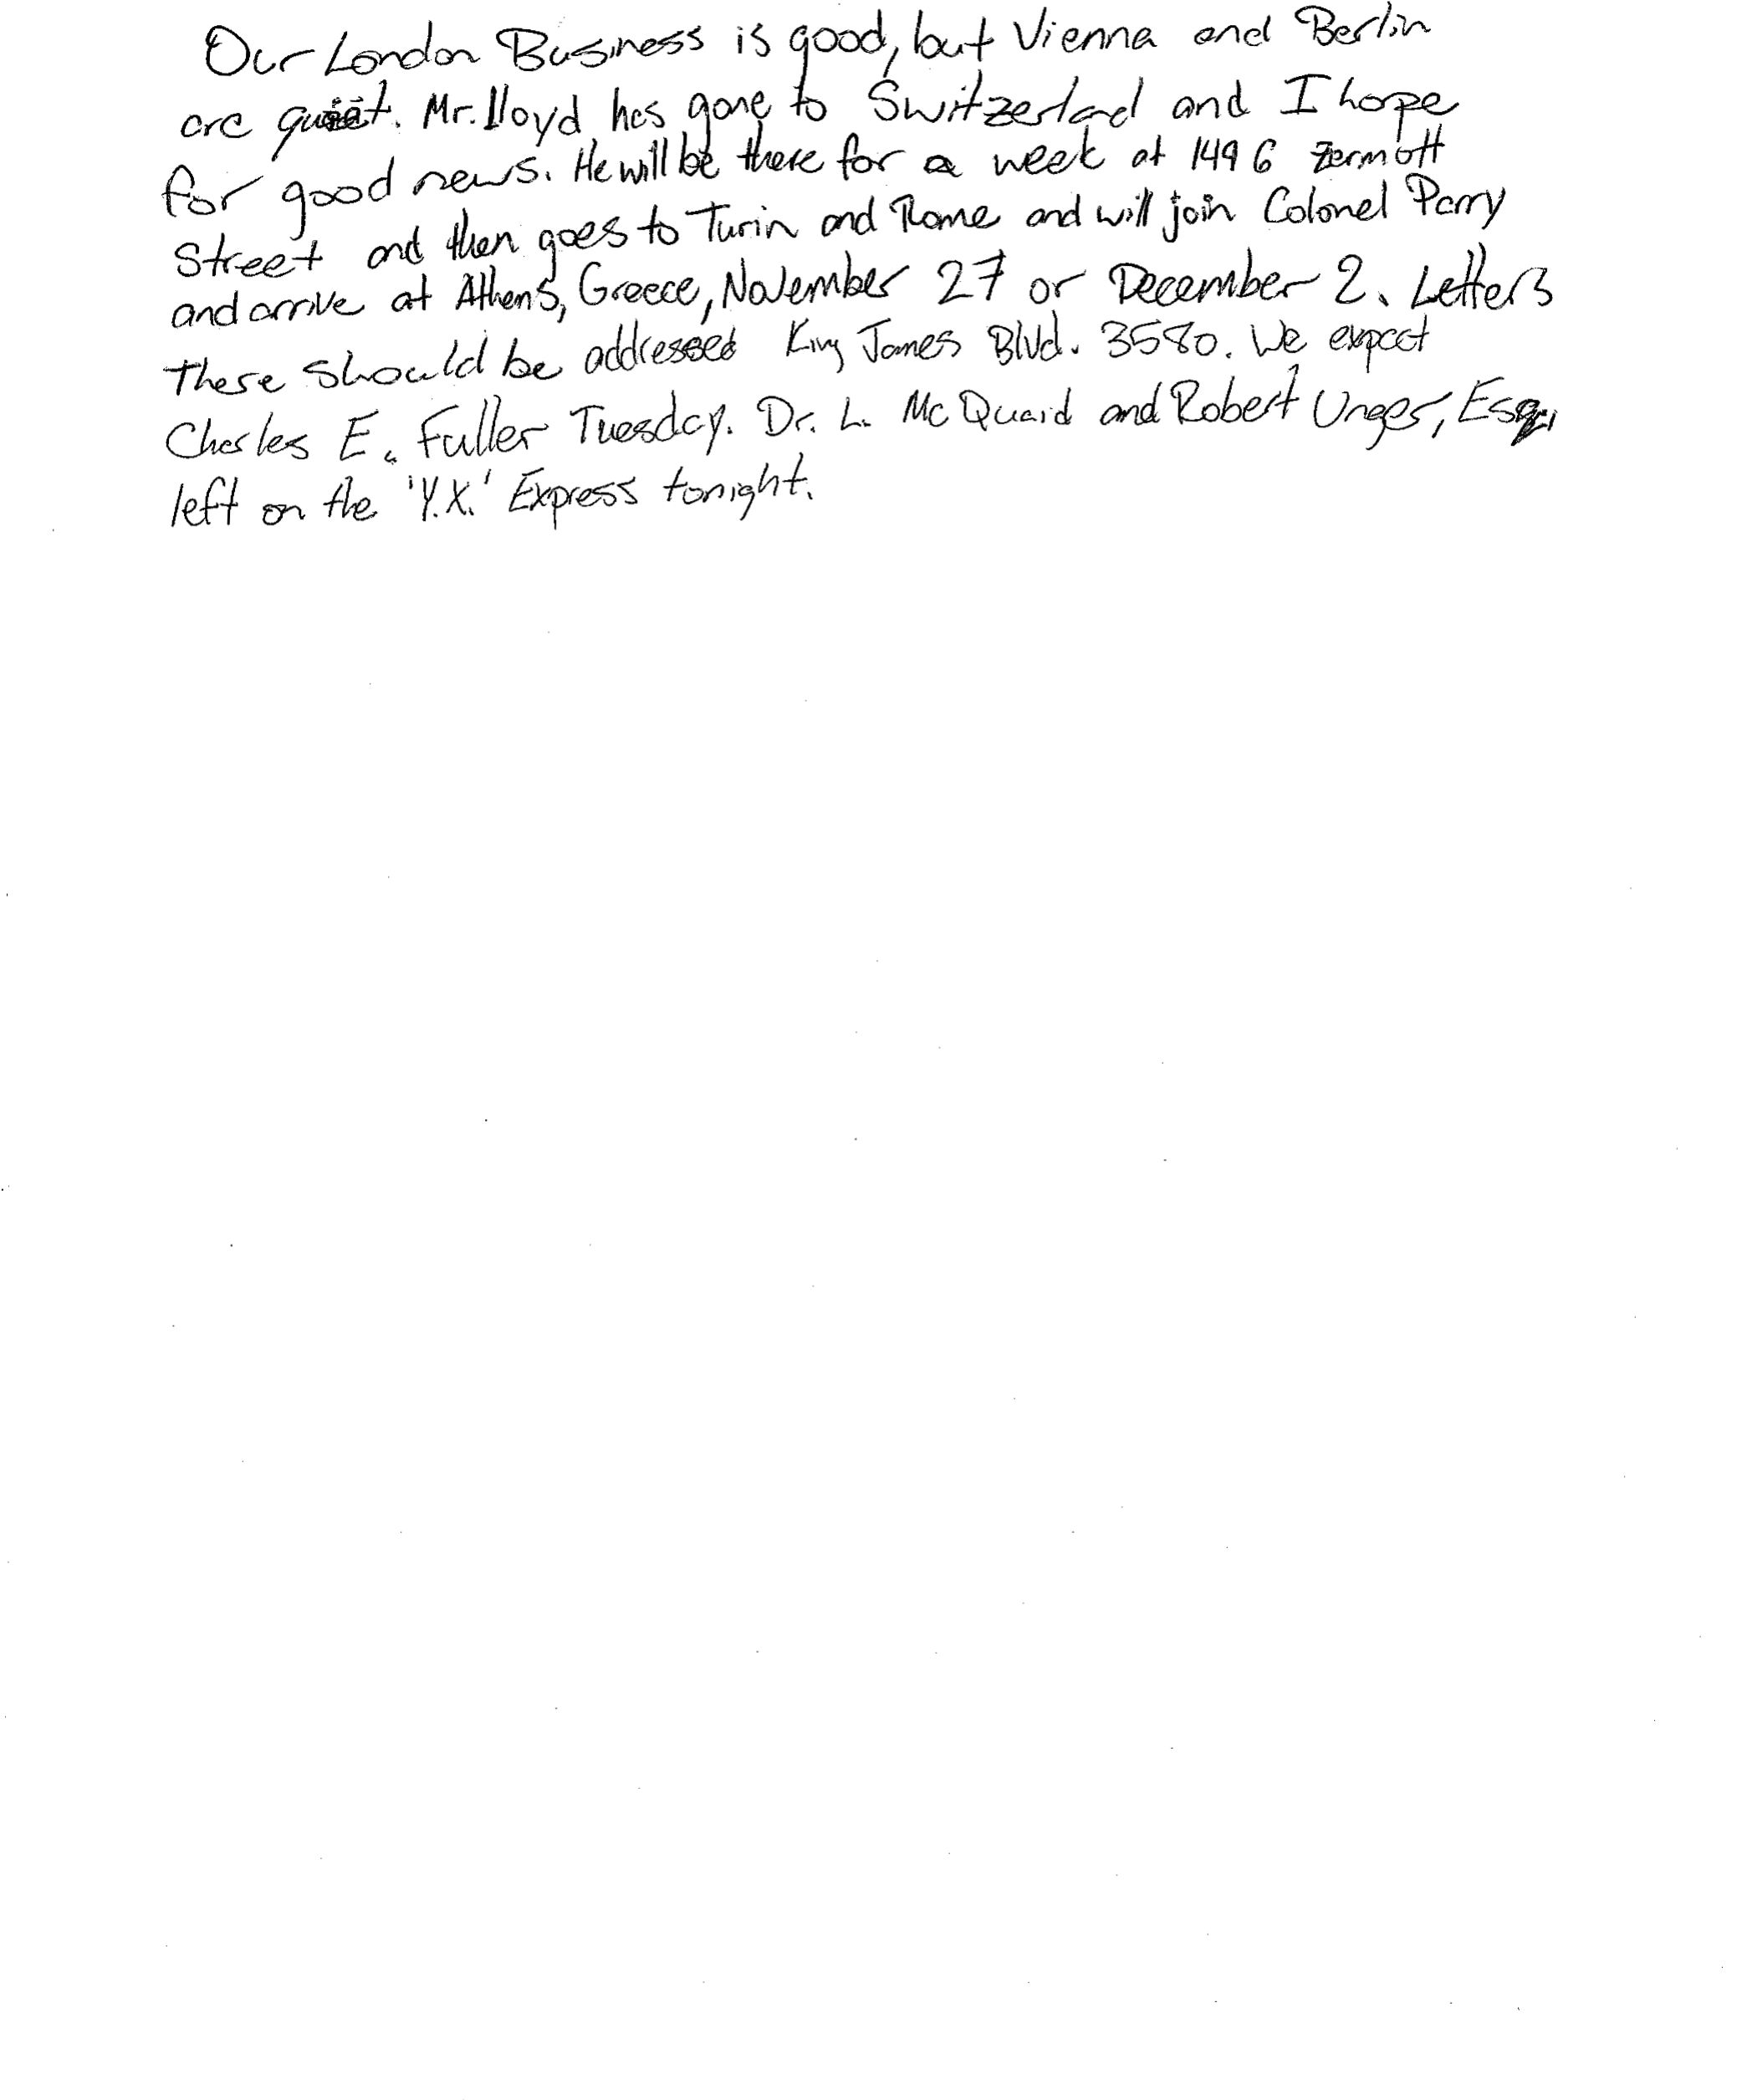 Our London Business is good, but Vienna and Berlin
are quiet. Mr. Lloyd has gone to Switzerlad and I hope
for good news. He will be there for a week at 1496 Zermott
Street and then goes to Turin and Rome and will join Colonel Parry
and arrive at Athens, Greece, November 27 or December 2. Letters
there should be addressed King James Blvd. 3580. We expect
Charles E. Fuller Tuesday. Dr. L. McQuaid and Robert Unger, Esq.,
left on the 'Y.X.' Express tonight.